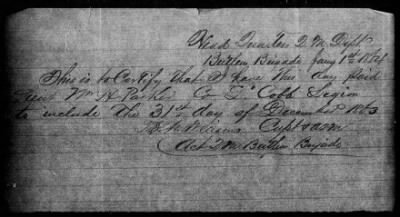 Head Quarters Q M Dept
Butlers Brigade Jany 1st 1864
This is to Certify that I have this day paid
Lieut Wm H Parker Co "I" Cobb Legion
to include the 31st day of December 1863
Williams Capt & AQM
Act QM Butlers Brigade